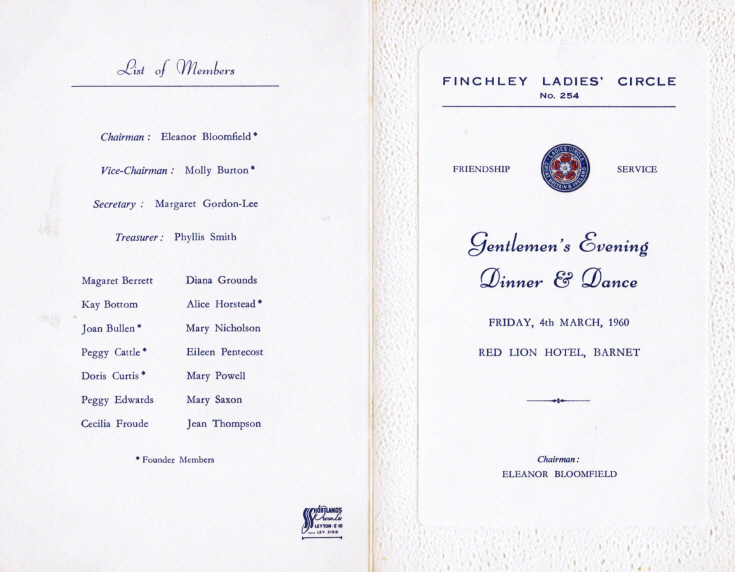 List of Members
Chairman : Eleanor Bloomfield*
Vice-Chairman : Molly Burton*
Secretary : Margaret Gordon-Lee
Treasurer : Phyllis Smith
Magaret Berrett Diana Grounds
Kay Bottom Alice Horstead*
Joan Bullen* Mary Nicholson
Peggy Cattle* Eileen Pentecost
Doris Curtis* Mary Powell
Peggy Edwards Mary Saxon
Cecilia Froude Jean Thompson
* Founder Members
LEYTON · E·10
FINCHLEY LADIES' CIRCLE
No. 254
FRIENDSHIP
LADIES CIRCLE
GREAT BRITAIN & IRELAND
SERVICE
Gentlemen's Evening
Dinner & Dance
FRIDAY, 4th MARCH, 1960
RED LION HOTEL, BARNET
Chairman :
ELEANOR BLOOMFIELD